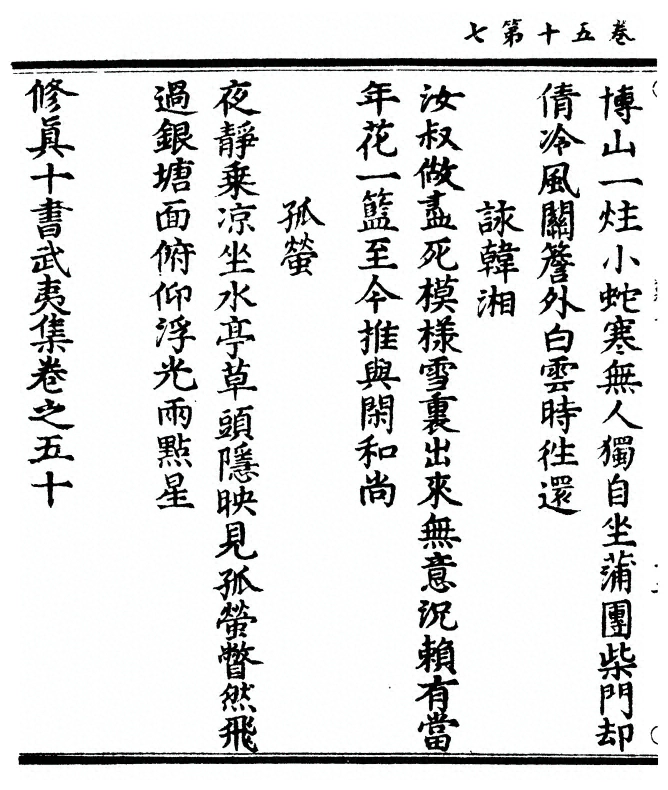 卷五十第七
博山一炷小蛇寒無人獨自坐蒲團柴門却
倩冷風關簷外白雲時徃還
詠韓湘
汝叔做盡死模樣雪裏出來無意況賴有當
年花一籃至今推與閑和尚
孤螢
夜靜乗凉坐水亭草頭隱映見孤螢瞥然飛
過銀塘面俯仰浮光兩點星
修眞十書武夷集卷之五十